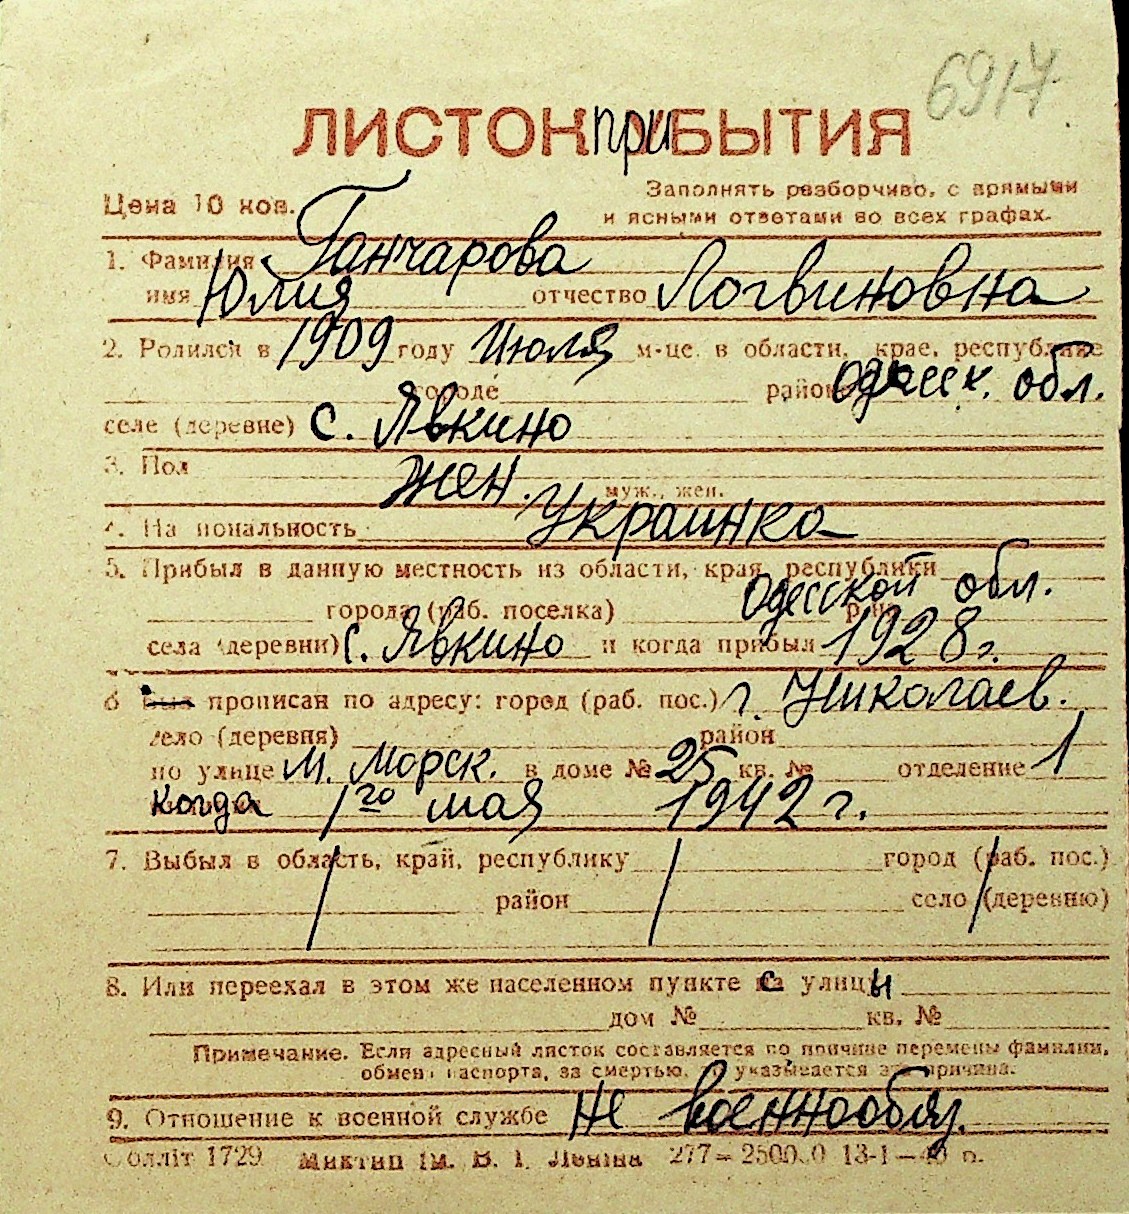 6917
ЛИСТОК приБЫТИЯ
Цена 10 коп.
Заполнять разборчиво, с прямыми
и ясными ответами во всех графах.
1. Фамилия Ганчарова
имя Юлия отчество Логвиновна
2. Родился в 1909 году Июля м-це в области, крае, республике
городе район Одесск. обл.
селе (деревне) с. Явкино
3. Пол жен.
муж., жен.
4. Национальность Украинка
5. Прибыл в данную местность из области, края, республики
города (раб. поселка) Одесской обл.
села (деревни) с. Явкино и когда прибыл 1928 г.
6 был прописан по адресу: город (раб. пос.) г. Николаев.
село (деревня) район
по улице М. Морск. в доме № 25 кв. № отделение 1
когда 1го мая 1942 г.
7. Выбыл в область, край, республику город (раб. пос.)
район село (деревню)
8. Или переехал в этом же населенном пункте с улицы
дом № кв. №
Примечание. Если адресный листок составляется по причине перемены фамилии,
обмен паспорта, за смертью, указывается эта причина.
9. Отношение к военной службе Не военнообяз.
Обліт 1729 Миктип ім. В. І. Леніна 277— 13-1—